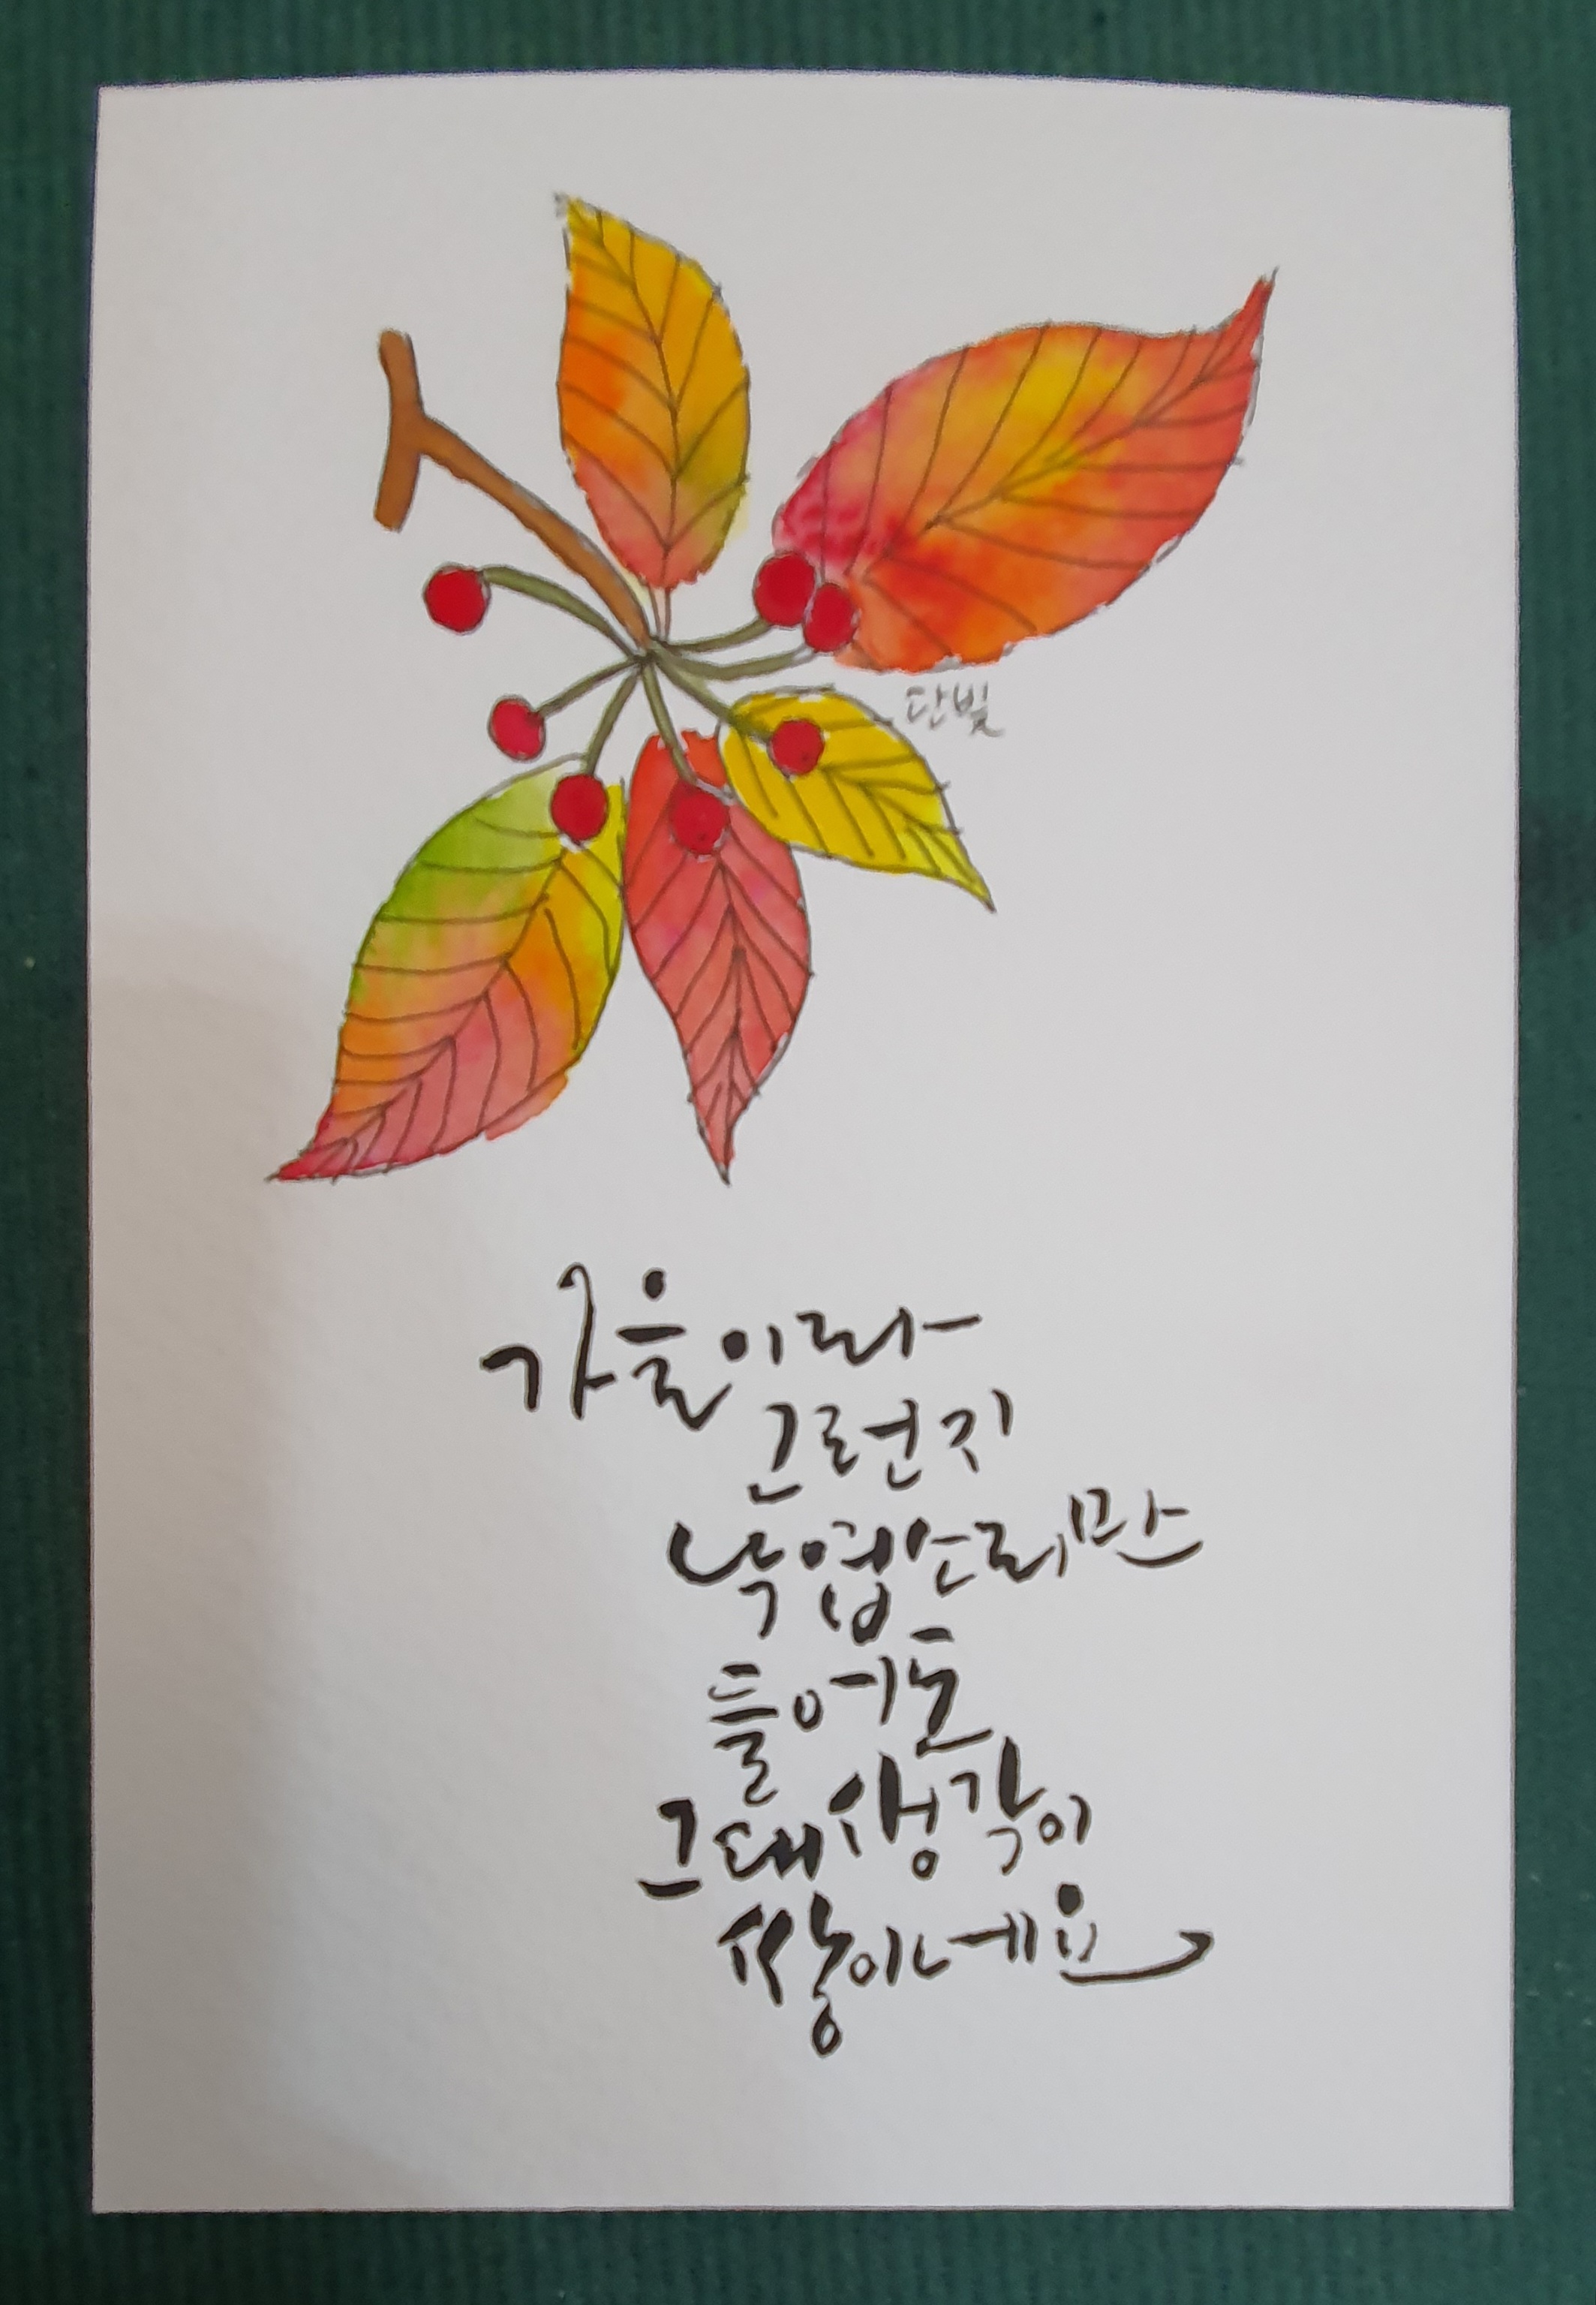 단빛
가을이라
그런지
낙엽소리만
들어도
그대생각이
쌓이네요